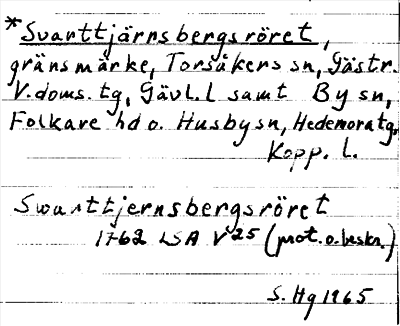 *Svarttjärnsbergsröret,
gränsmärke, Torsåkers sn, Gästr.
V.doms. tg, Gävl. l samt By sn,
Folkare hd o. Husby sn, Hedemora tg,
Kopp. l.
Swarttjernsbergsröret
1762 LSA V 25 (prot. o. beskr.)
S. Hg 1965